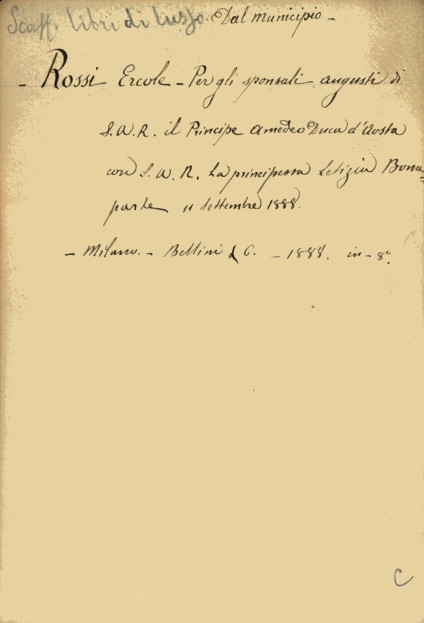 Scaff. libri di lusso. Dal municipio -
- Rossi Ercole - Per gli sponsali augusti di
S.A.R. il Principe Amedeo Duca d'Aosta
con S.A.R. la principessa Letizia Bona=
parte 11 Settembre 1888.
- Milano. - Bellini & C. - 1888. in - 8°.
C